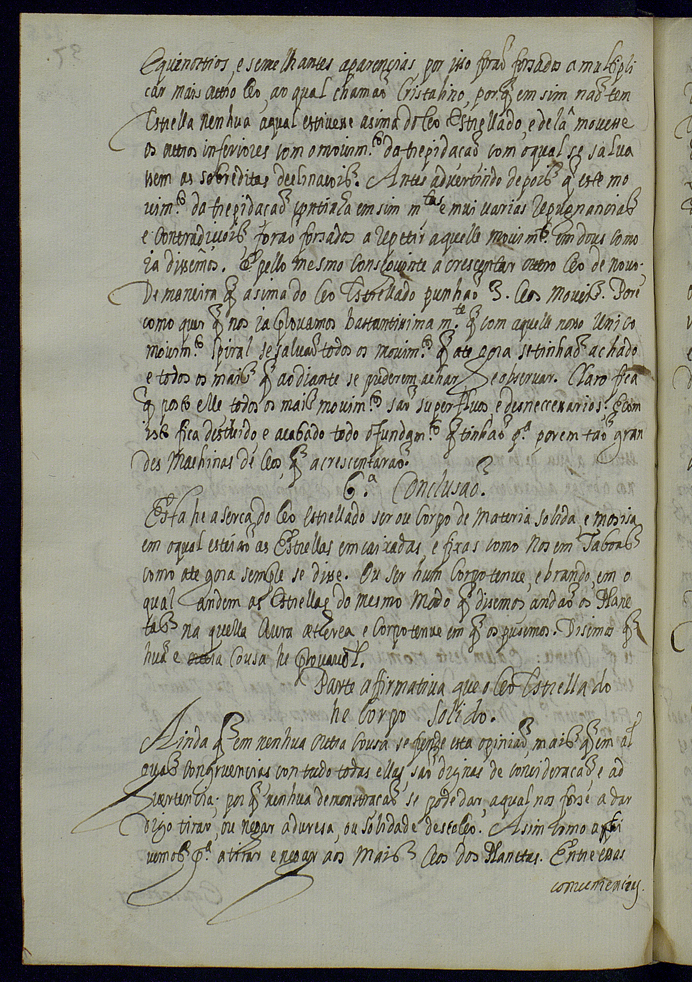 Equinottios, e semelhantes aparençias por isso forão forsados a multipli
car mais outro Ceo, ao qual chamão Cristalino, porq̃ em sim não tem
Estrella nenhua a qual estivesse asima do Ceo Estrellado, e de lâ movesse
os outros inferiores com o movim.to da trepidação com o qual se salva
sem as sobreditas declinaçois. Antes advertindo depois q̃ este mo
vim.to da trepidação continha em sim m.tas e mui varias repugnancias
e Contradiçois forão forsados a repetir aquelle movim.to em dous como
ia dissemos. E pello mesmo conseguinte acrescentar outro Ceo de novo.
De maneira q̃ asima do Ceo Estrellado punhão 3. Ceos Moveis. Porẽ
como quer q̃ nos ia provamos bastantissimam.te q̃ com aquelle nosso Unico
movim.to spiral se salvão todos os movim.tos q̃ ate gora se tinhão achado
e todos os mais q̃ ao diante se puderem achar e observar. Claro fica
q̃ posto elle todos os mais movim.tos são superfluos e desneccesarios: E com
isto fica destruido e acabado todo o fundam.to q̃ tinhão p.a porem tão gran
des Machinas de Ceos, q̃ acrescentarão.
6.a Conclusão.
Esta he aserca do Ceo Estrellado ser ou Corpo de Materia solida, e mosisa
em o qual estejão as Estrellas emcaixadas, e fixas como Nos em Taboas
como ate gora sempre se disse. Ou ser hum Corpo tenue, e brando, em o
qual Andem as Estrellas do mesmo Modo q̃ disemos andão os Plane
tas na quella Aura ætherea e Corpo tenue em q̃ os pusemos. Disemos q̃
hua e outra Cousa he Provavel.
Parte affirmativa que o Ceo Estrellado
he Corpo Solido.
Ainda q̃ em nenhua outra Cousa se funde esta opinião, mais q̃ em al
guas congruencias com tudo todas ellas são dignas de consideração e ad
vertencia. por q̃ nenhua demonstração se pode dar, a qual nos forse a dar
digo tirar, ou negar a duresa, ou solidade deste Ceo. Assim como a ti
vemos p.a a tirar e negar aos Mais Ceos dos Planetas. Entre estas
comvenencias.